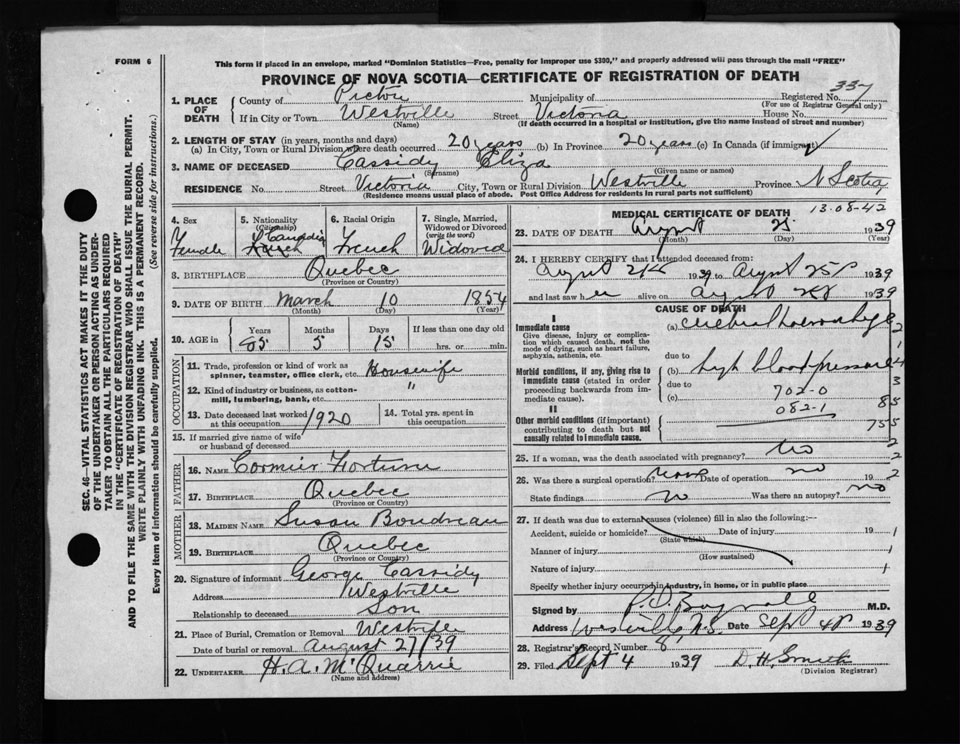 FORM 6
This form if placed in an envelope, marked "Dominion Statistics—Free, penalty for improper use $300," and properly addressed will pass through the mail "FREE"
PROVINCE OF NOVA SCOTIA—CERTIFICATE OF REGISTRATION OF DEATH
SEC. 46—VITAL STATISTICS ACT MAKES IT THE DUTY
OF THE UNDERTAKER OR PERSON ACTING AS UNDER-
TAKER TO OBTAIN ALL THE PARTICULARS REQUIRED
IN THE "CERTIFICATE OF REGISTRATION OF DEATH"
AND TO FILE THE SAME WITH THE DIVISION REGISTRAR WHO SHALL ISSUE THE BURIAL PERMIT.
WRITE PLAINLY WITH UNFADING INK. THIS IS A PERMANENT RECORD.
Every item of information should be carefully supplied. (See reverse side for instructions.)
1. PLACE OF DEATH
County of Pictou Municipality of Registered No. 337
(For use of Registrar General only)
If in City or Town Westville Street Victoria House No.
(Name) (If death occurred in a hospital or institution, give the name instead of street and number)
2. LENGTH OF STAY (in years, months and days)
(a) In City, Town or Rural Division where death occurred 20 years (b) In Province 20 years (c) In Canada (if immigrant)
3. NAME OF DECEASED Cassidy Eliza
(Surname) (Given name or names)
RESIDENCE No. Street Victoria City, Town or Rural Division Westville Province N Scotia
(Residence means usual place of abode. Post Office Address for residents in rural parts not sufficient)
4. Sex Female
5. Nationality (Citizenship) Canadian
6. Racial Origin French
7. Single, Married, Widowed or Divorced (write the word) Widowed
8. BIRTHPLACE Quebec
(Province or Country)
9. DATE OF BIRTH March 10 1854
(Month) (Day) (Year)
10. AGE in Years Months Days If less than one day old
85 5 15 hrs. or min.
OCCUPATION
11. Trade, profession or kind of work as spinner, teamster, office clerk, etc. Housewife
12. Kind of industry or business, as cotton-mill, lumbering, bank, etc. "
13. Date deceased last worked at this occupation 1920
14. Total yrs. spent in this occupation
15. If married give name of wife or husband of deceased
FATHER
16. NAME Cormier Fortune
17. BIRTHPLACE Quebec
(Province or Country)
MOTHER
18. MAIDEN NAME Susan Boudreau
19. BIRTHPLACE Quebec
(Province or Country)
20. Signature of informant George Cassidy
Address Westville
Relationship to deceased Son
21. Place of Burial, Cremation or Removal Westville
Date of burial or removal August 27/39
22. UNDERTAKER H. A. McQuarrie
(Name and address)
MEDICAL CERTIFICATE OF DEATH 13-08-42
23. DATE OF DEATH August 25 1939
(Month) (Day) (Year)
24. I HEREBY CERTIFY that I attended deceased from:
August 1939 to August 25 1939
and last saw her alive on August 1939
CAUSE OF DEATH
I
Immediate cause
Give disease, injury or complication which caused death, not the mode of dying, such as heart failure, asphyxia, asthenia, etc.
(a) cerebral haemorrhage
due to
Morbid conditions, if any, giving rise to immediate cause (stated in order proceeding backwards from immediate cause).
(b) high blood pressure
due to
(c) 702-0
082-1
II
Other morbid conditions (if important) contributing to death but not causally related to immediate cause.
25. If a woman, was the death associated with pregnancy? No
26. Was there a surgical operation? none Date of operation no 19
State findings no Was there an autopsy? no
27. If death was due to external causes (violence) fill in also the following:—
Accident, suicide or homicide? Date of injury 19
(State which)
Manner of injury
(How sustained)
Nature of injury
Specify whether injury occurred in industry, in home, or in public place
Signed by M.D.
Address Westville N.S. Date Sept 4 1939
28. Registrar's Record Number 8
29. Filed Sept 4 1939 D. H. Smith
(Division Registrar)